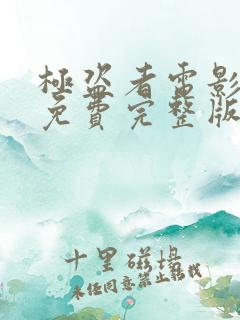 極盜者電影
免費完整版
十里磁場
未任同意禁止轉載